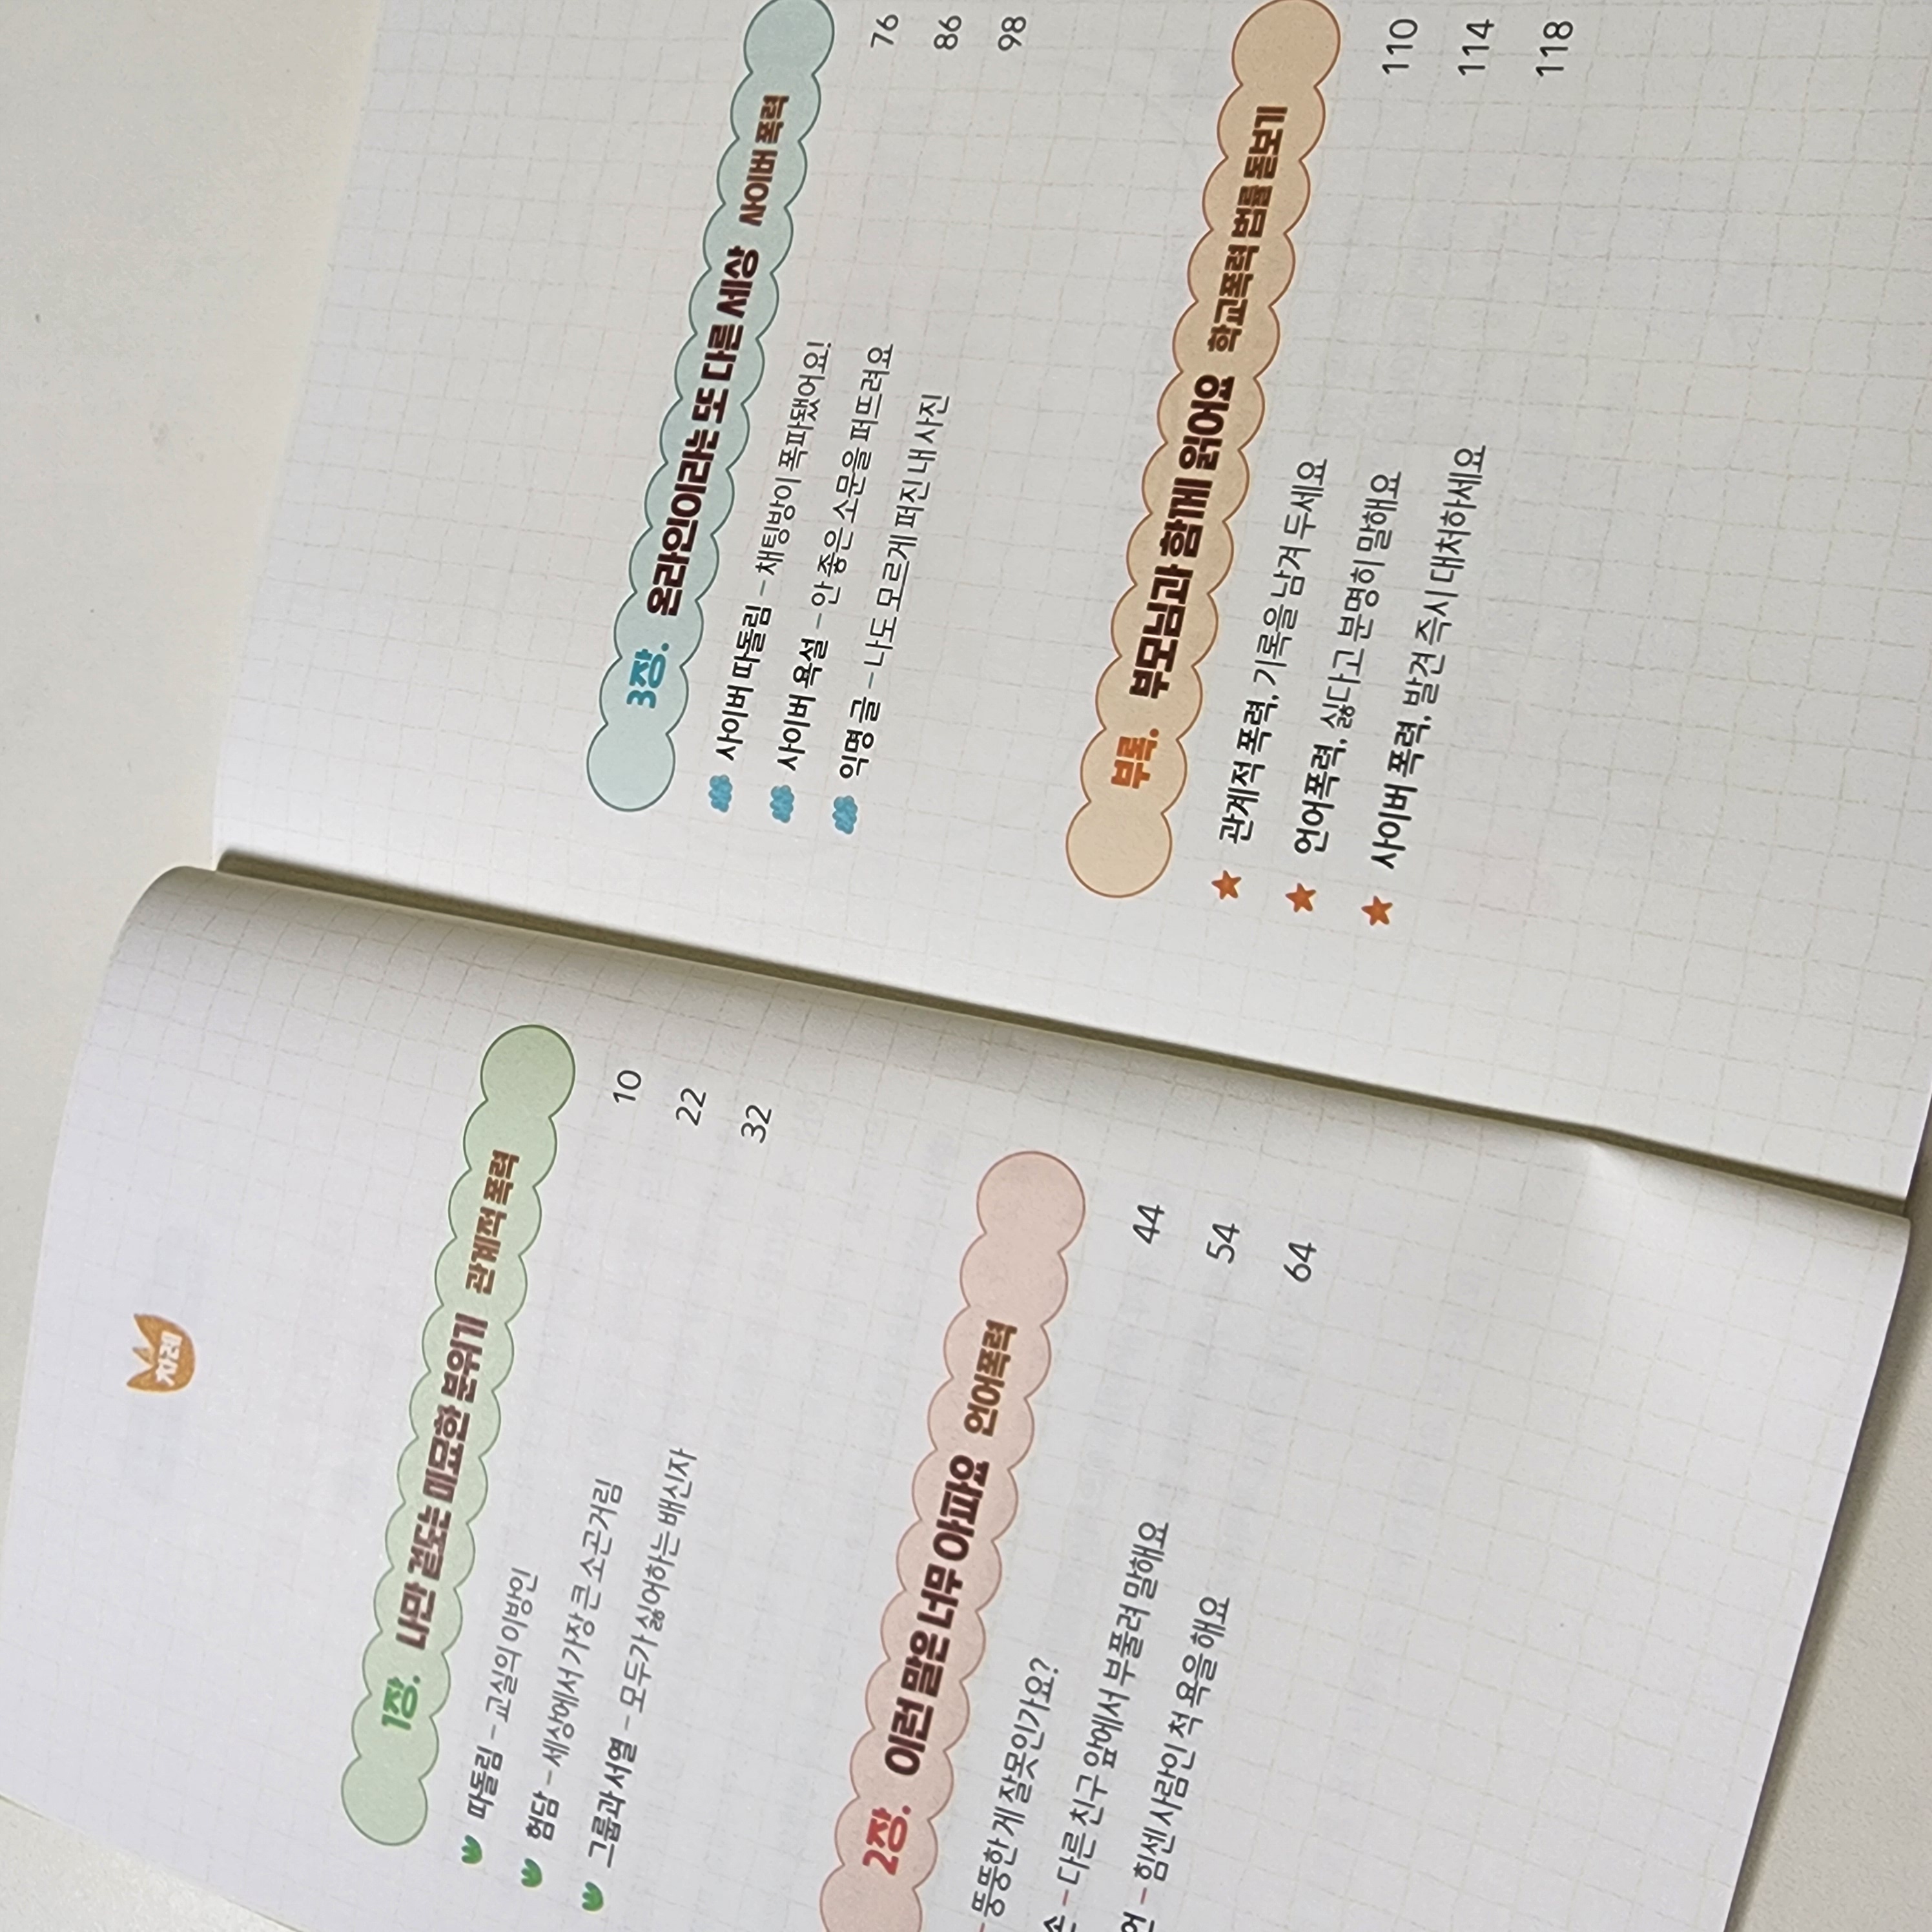 차례
1장. 나만 겉도는 미묘한 분위기 관계적 폭력
따돌림 – 교실의 이방인 10
험담 – 세상에서 가장 큰 소곤거림 22
그룹과 서열 – 모두가 싫어하는 배신자 32
2장. 이런 말은 너무 아파요 언어폭력
– 뚱뚱한 게 잘못인가요? 44
– 다른 친구 앞에서 부풀려 말해요 54
– 힘센 사람인 척 욕을 해요 64
3장. 온라인이라는 또 다른 세상 사이버 폭력
사이버 따돌림 – 채팅방이 폭파됐어요! 76
사이버 욕설 – 안 좋은 소문을 퍼뜨려요 86
익명 글 – 나도 모르게 퍼진 내 사진 98
부록. 부모님과 함께 읽어요 학교폭력 법률 돋보기
관계적 폭력, 기록을 남겨 두세요 110
언어폭력, 싫다고 분명히 말해요 114
사이버 폭력, 발견 즉시 대처하세요 118